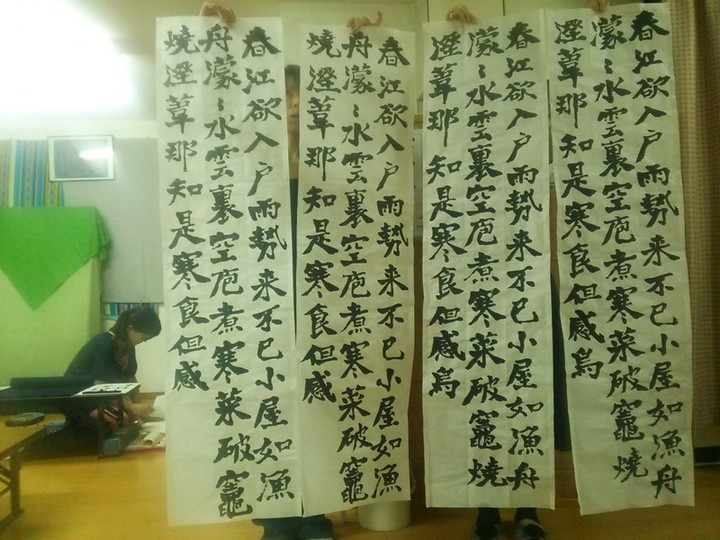 春江欲入戸雨勢来不已小屋如漁舟
濛〻水雲裏空庖煮寒菜破竈燒
溼葦那知是寒食但感烏
春江欲入戸雨勢来不已小屋如漁舟
濛〻水雲裏空庖煮寒菜破竈燒
溼葦那知是寒食但感烏
春江欲入戸雨勢来不已小屋如漁
舟濛〻水雲裏空庖煮寒菜破竈
燒溼葦那知是寒食但感
春江欲入戸雨勢来不已小屋如漁
舟濛〻水雲裏空庖煮寒菜破竈
燒溼葦那知是寒食但感